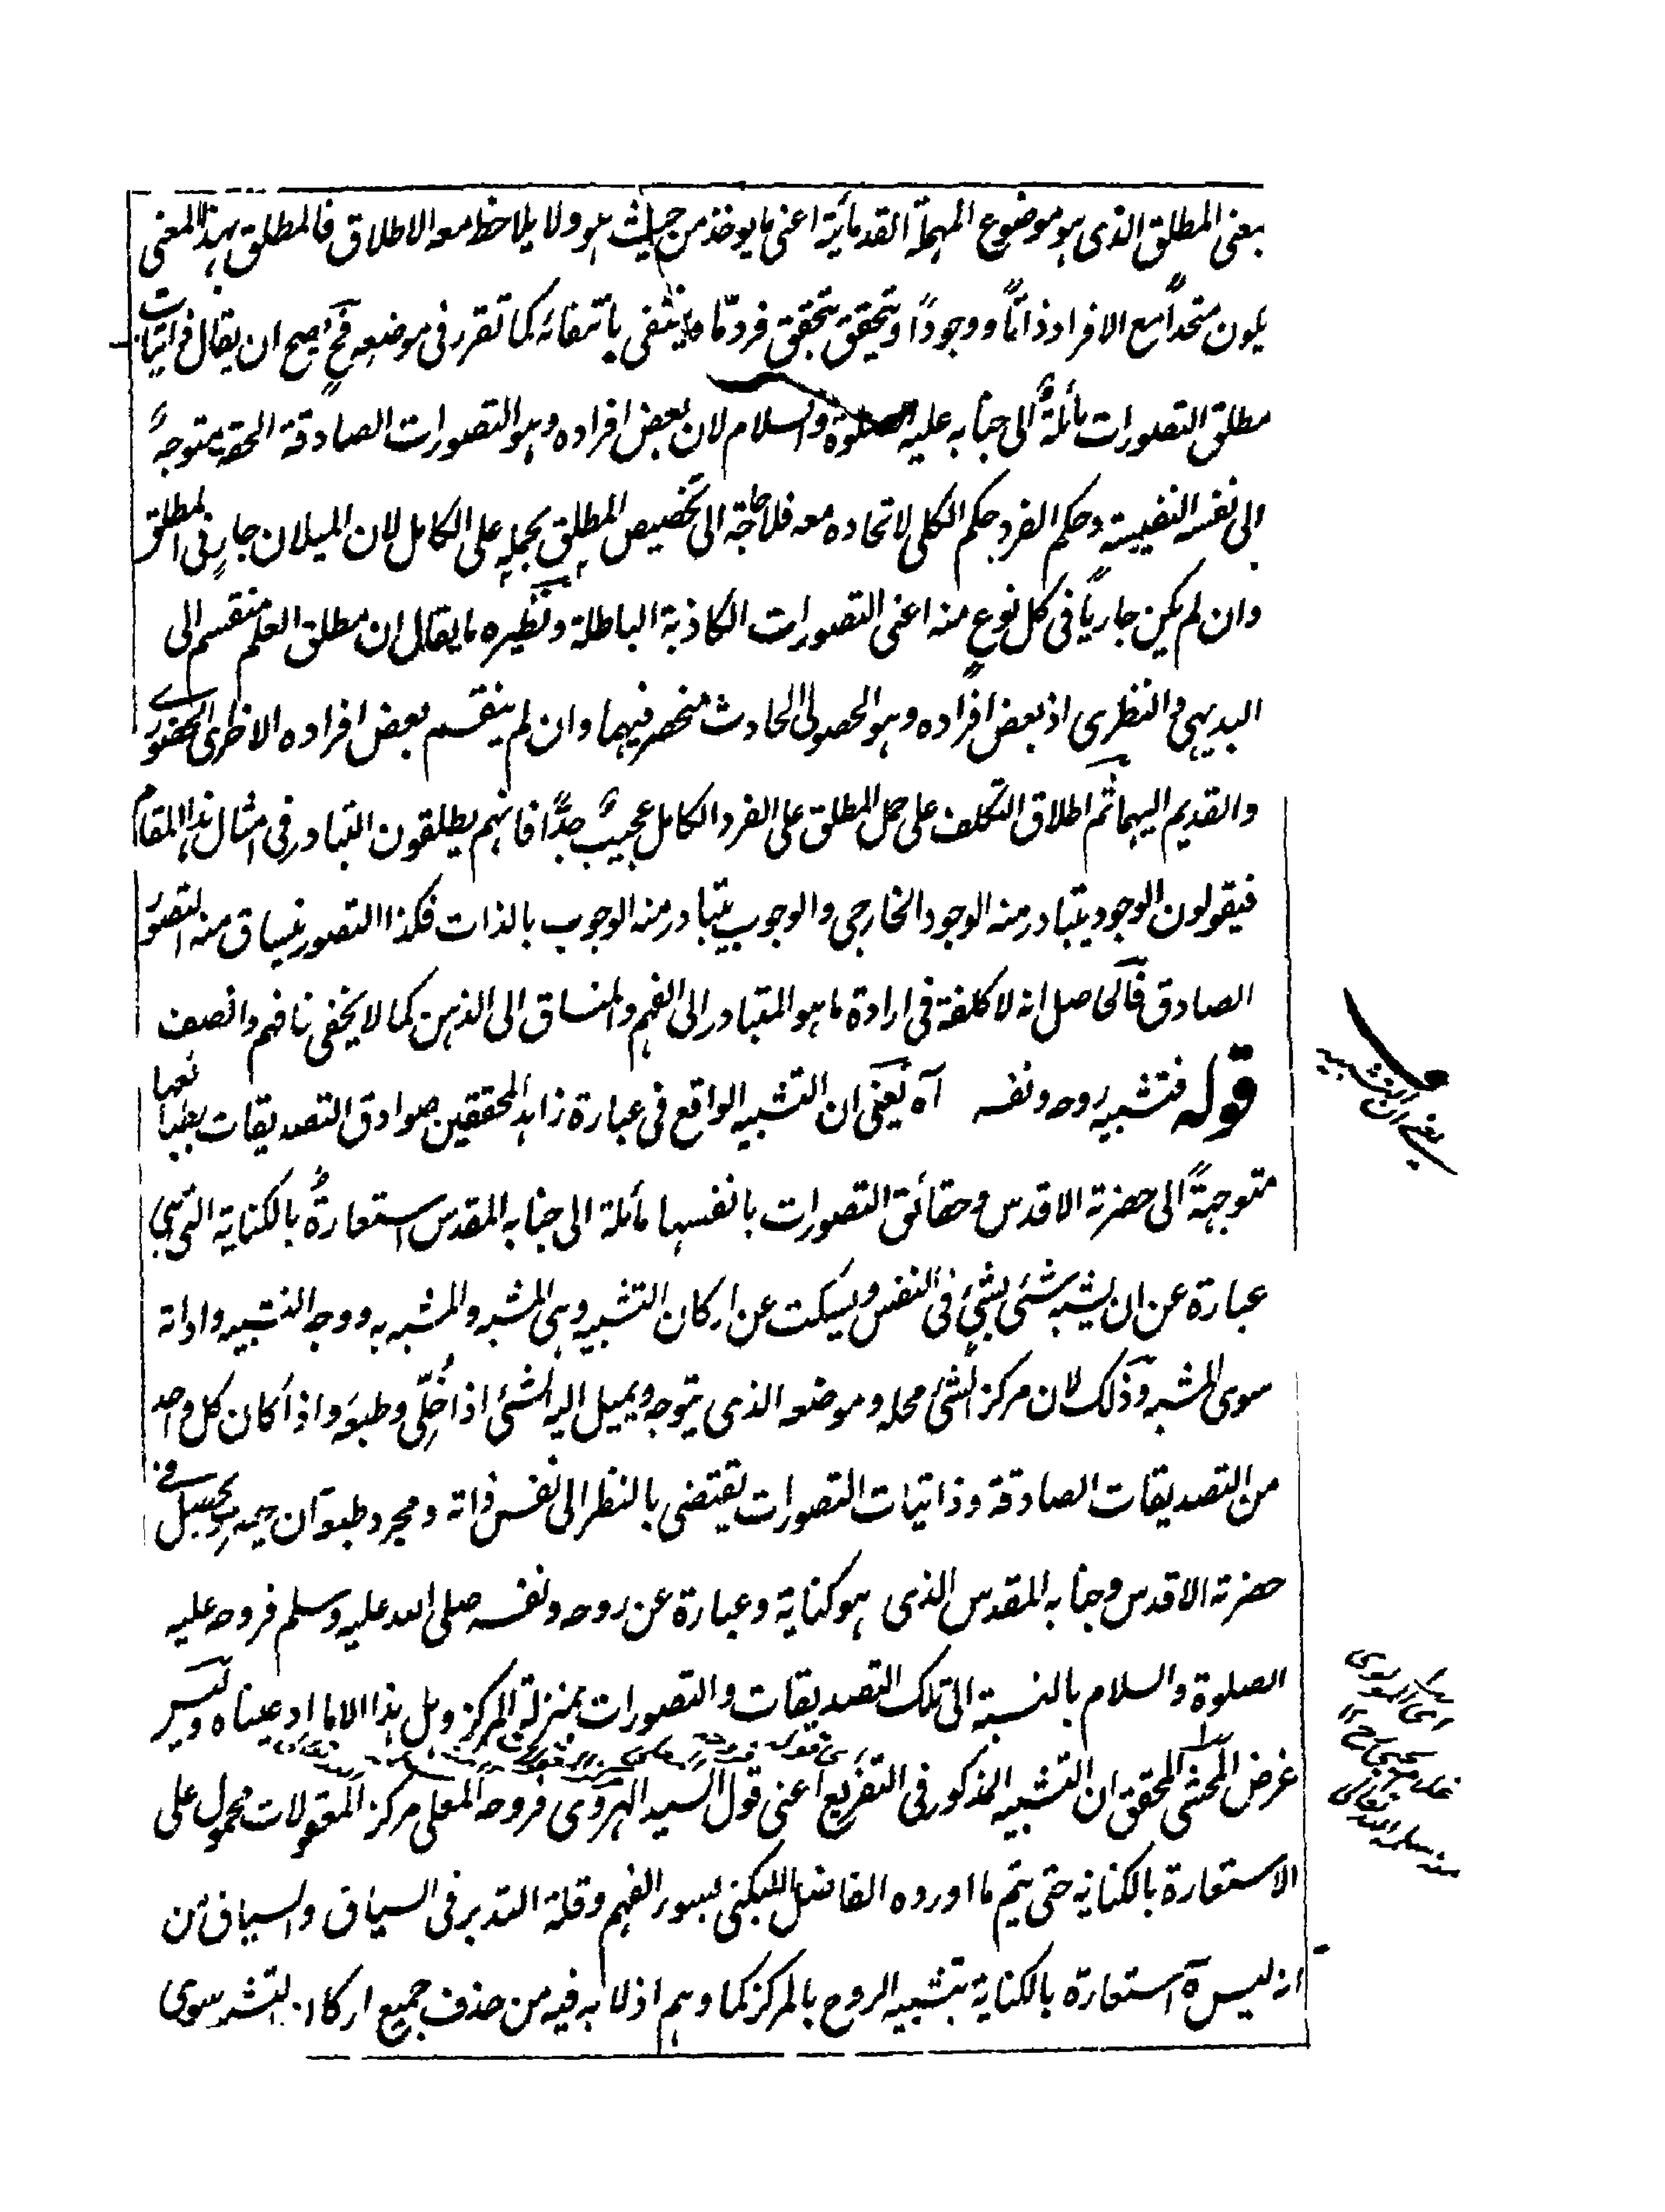 بمعنى المطلق الذى هو موضوع المهملة القدمائية اعنى ما يوخذ من حيث هو ولا يلاحظ معه الاطلاق فالمطلق بهذا المعنى
يكون متحداً مع الافراد ذاتاً ووجوداً ويتحقق بتحقق فرد مّا وينتفى بانتفائه كما تقرر فى موضعه فح يصح ان يقال ذاتيات
مطلق التصورات مائلةٌ الى جنابه عليه الصلوة والسلام لان بعض افراده وهو التصورات الصادقة الحقة متوجهةً
الى نفسه النفيسة وحكم الفرد حكم الكلى لاتحاده معه فلا حاجة الى تخصيص المطلق بحمله على الكامل لان الميلان جارٍ فى المطلق
وان لم يكن جارياً فى كل نوعٍ منه اعنى التصورات الكاذبة الباطلة ونظيره ما يقال ان مطلق العلم منقسم الى
البديهى والنظرى اذ بعض افراده وهو الحصولى الحادث منحصر فيهما وان لم ينقسم بعض افراده الاخرى الحضورى
والقديم اليهما ثم اطلاق التكلف على حمل المطلق على الفرد الكامل عجيبٌ جدًّا فانهم يطلقون التبادر فى امثال هذا المقام
فيقولون الوجود يتبادر منه الوجود الخارجى والوجوب يتبادر منه الوجوب بالذات فكذا التصور ينساق منه التصور
الصادق فالحاصل انه لا كلفة فى ارادة ما هو المتبادر الى الفهم والمنساق الى الذهن كما لا يخفى فافهم وانصف
قوله فتشبيه روحه ونفسه آه يعنى ان التشبيه الواقع فى عبارة زاهد المحققين صوادق التصديقات بطبائعها
متوجهةً الى حضرته الاقدس وحقائق التصورات بانفسها مائلة الى جنابه المقدس استعارةٌ بالكناية التى هى
عبارة عن ان يشبه شئى بشئ فى النفس ويسكت عن اركان التشبيه وهى المشبه والمشبه به ووجه التشبيه واداته
سوى المشبه وذلك لان مركز الشئ محله وموضعه الذى يتوجه ويميل اليه الشئى اذا خُلّى وطبعه واذا كان كل واحد
من التصديقات الصادقة وذاتيات التصورات يقتضى بالنظر الى نفس ذاته ومجرد طبعه ان يحصل فى
حضرته الاقدس وجنابه المقدس الذى هو كناية وعبارة عن روحه ونفسه صلى الله عليه وسلم فروحه عليه
الصلوة والسلام بالنسبة الى تلك التصديقات والتصورات بمنزلة المركز وهل هذا الا ما ادعيناه وليس
غرض المحشى المحقق ان التشبيه المذكور فى التفريع اعنى قول السيد الهروى فروحه المعلى مركز المعقولات محمول على
الاستعارة بالكناية حتى يتم ما اورده الفاضل اللبكنى بسوء الفهم وقلة التدبر فى السياق والسباق من
انه ليس استعارة بالكناية بتشبيه الروح بالمركز كما وهم اذ لا بد فيه من حذف جميع اركان التشبيه سوى
يعنى ان التشبيه